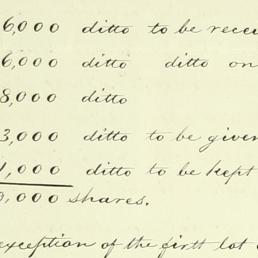 6,000 ditto to be recei
6,000 ditto ditto on
8,000 ditto
3,000 ditto to be given
1,000 ditto to be kept
0,000 shares.
exception of the first lot